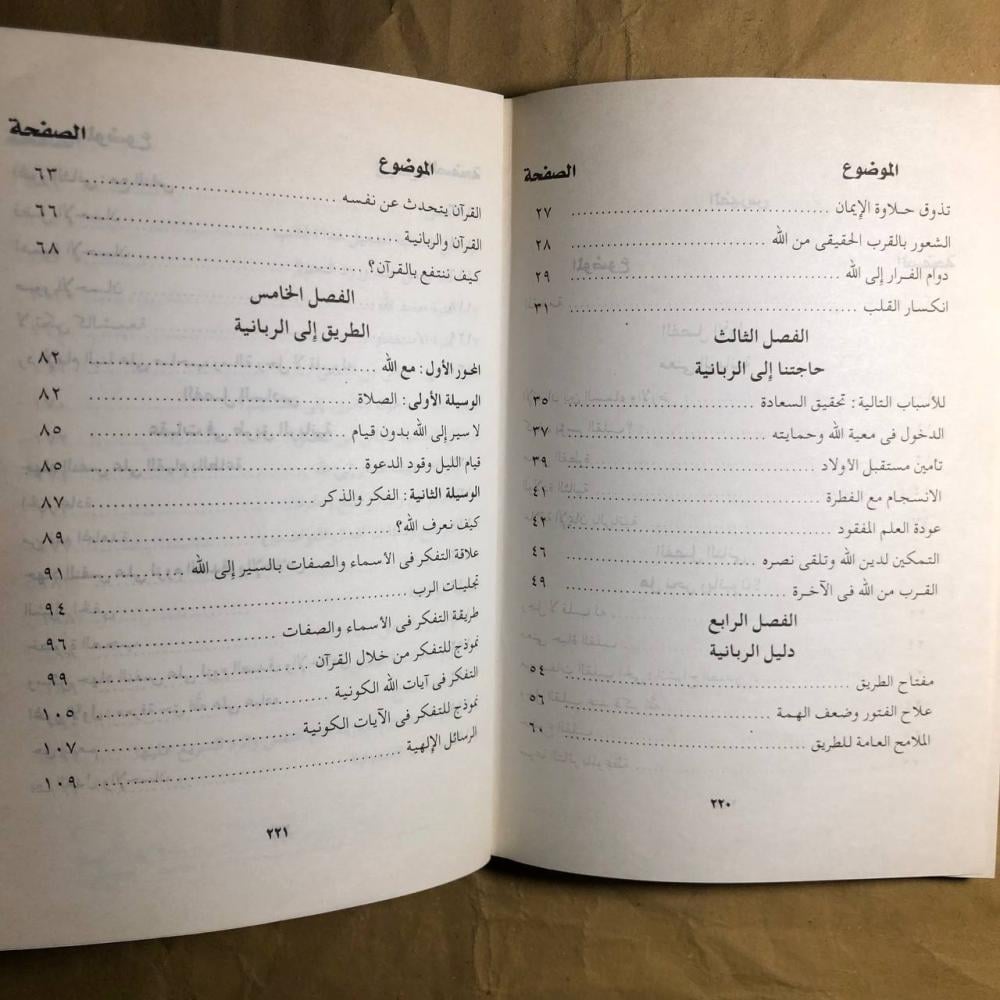 الموضوع الصفحة
تذوق حلاوة الإيمان ........ ٢٧
الشعور بالقرب الحقيقى من الله ........ ٢٨
دوام الفرار إلى الله ........ ٢٩
انكسار القلب ........ ٣١
الفصل الثالث
حاجتنا إلى الربانية
للأسباب التالية: تحقيق السعادة ........ ٣٥
الدخول فى معية الله وحمايته ........ ٣٧
تأمين مستقبل الأولاد ........ ٣٩
الانسجام مع الفطرة ........ ٤١
عودة العلم المفقود ........ ٤٢
التمكين لدين الله وتلقى نصره ........ ٤٦
القرب من الله فى الآخرة ........ ٤٩
الفصل الرابع
دليل الربانية
مفتاح الطريق ........ ٥٤
علاج الفتور وضعف الهمة ........ ٥٦
الملامح العامة للطريق ........ ٦٠
٢٢٠
الموضوع الصفحة
القرآن يتحدث عن نفسه ........ ٦٣
القرآن والربانية ........ ٦٦
كيف ننتفع بالقرآن؟ ........ ٦٨
الفصل الخامس
الطريق إلى الربانية
المحور الأول: مع الله ........ ٨٢
الوسيلة الأولى: الصلاة ........ ٨٢
لا سير إلى الله بدون قيام ........ ٨٥
قيام الليل وقود الدعوة ........ ٨٥
الوسيلة الثانية: الفكر والذكر ........ ٨٧
كيف نعرف الله؟ ........ ٨٩
علاقة التفكر فى الأسماء والصفات بالسير إلى الله ........ ٩١
تجليات الرب ........ ٩٤
طريقة التفكر فى الأسماء والصفات ........ ٩٦
نموذج للتفكر من خلال القرآن ........ ٩٩
التفكر فى آيات الله الكونية ........ ١٠٥
نموذج للتفكر فى الآيات الكونية ........ ١٠٧
الرسائل الإلهية ........ ١٠٩
٢٢١